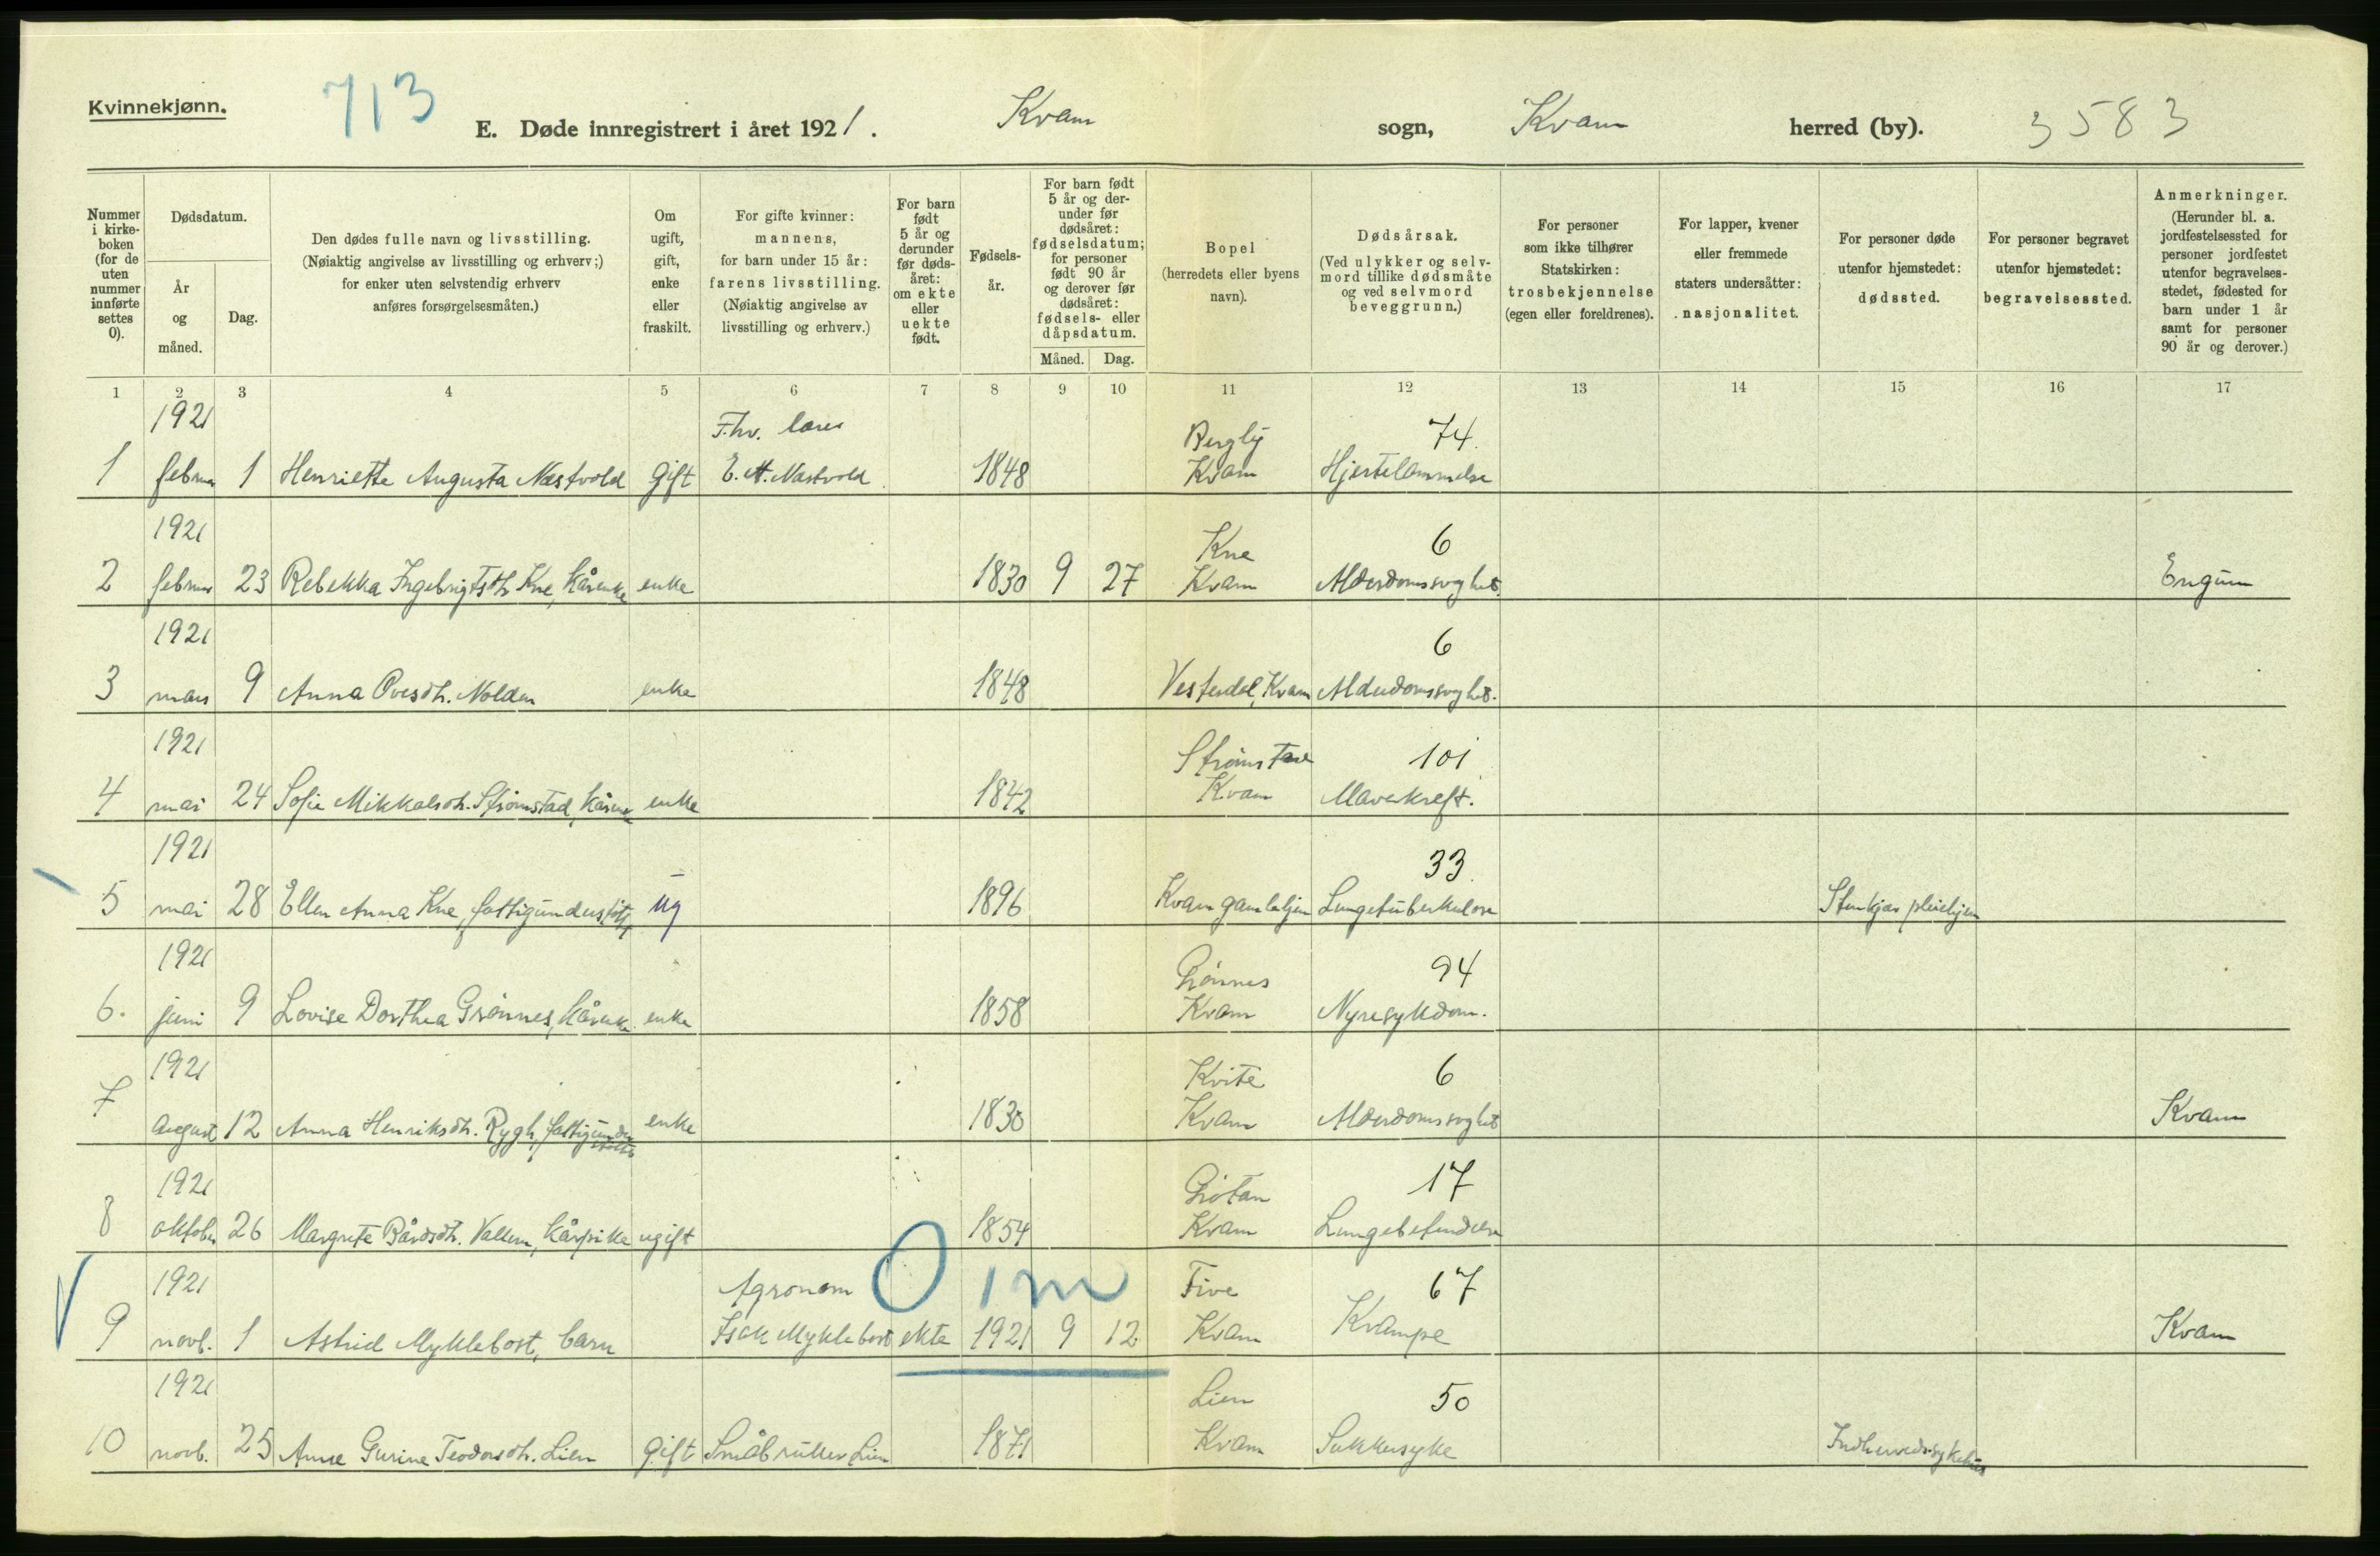 Kvinnekjønn.
713
E. Døde innregistrert i året 1921. Kvam sogn, Kvam herred (by). 3583
Nummer i kirkeboken (for de uten nummer innførte settes 0).
Dødsdatum.
År og måned.
Dag.
Den dødes fulle navn og livsstilling.
(Nøiaktig angivelse av livsstilling og erhverv;)
for enker uten selvstendig erhverv
anføres forsørgelsesmåten.)
Om ugift, gift, enke eller fraskilt.
For gifte kvinner:
mannens,
for barn under 15 år:
farens livsstilling.
(Nøiaktig angivelse av
livsstilling og erhverv.)
For barn født 5 år og derunder før dødsåret: om ekte eller uekte født.
Fødselsår.
For barn født 5 år og derunder før dødsåret: fødselsdatum; for personer født 90 år og derover før dødsåret: fødsels- eller dåpsdatum.
Måned. Dag.
Bopel
(herredets eller byens
navn).
Dødsårsak.
(Ved ulykker og selv-
mord tillike dødsmåte
og ved selvmord
beveggrunn.)
For personer
som ikke tilhører
Statskirken:
trosbekjennelse
(egen eller foreldrenes).
For lapper, kvener
eller fremmede
staters undersåtter:
nasjonalitet.
For personer døde
utenfor hjemstedet:
dødssted.
For personer begravet
utenfor hjemstedet:
begravelsessted.
Anmerkninger.
(Herunder bl. a.
jordfestelsessted for
personer jordfestet
utenfor begravelses-
stedet, fødested for
barn under 1 år
samt for personer
90 år og derover.)
1 2 3 4 5 6 7 8 9 10 11 12 13 14 15 16 17
1921 F.hv. Bergly 74.
1 1 Henriette Augusta Næstvold Gift E. A. Næstvold 1848 Kvam Hjertelammelse
1921 Kne 6
2 23 Rebekka Ingebrigtsdtr Kne, kårenke enke 1830 9 27 Kvam Alderdomssvaghet.
1921 6
3 mars 9 Anna Ovesdtr. Nolden enke 1848 Vesterdal, Kvam Alderdomssvaghet.
1921 Strømstad 101
4 mai 24 Sofie Mikkalsdtr. Strømstad, kårenke enke 1842 Kvam Mavekreft.
1921 33.
5 mai 28 Ellen Anna Kne, fattigunderstøt. ug 1896 Kvam gamlehjem Lungetuberkulose Stenkjær pleiehjem
1921 Grønnes 94
6. juni 9 Lovise Dorthea Grønnes, kårenke enke 1858 Kvam Nyresykdom.
1921 Kvite 6
7 august 12 Anna Henriksdtr. Rygh, fattigunderstøttet enke 1830 Kvam Alderdomssvaghet Kvam
1921 17
8 oktober 26 Margrete Bårdsdtr. Vallem, kårpike ugift 1854 Kvam Lungebetendelse
1921 Agronom 0 1 m Five 67
9 novb. 1 Astrid Myklebost, barn Isak Myklebost ekte 1921 9 12 Kvam Krampe Kvam
1921 Lien 50
10 novb. 25 Anne Gurine Teodorsdtr. Lien Gift Småbruker Lien 1871 Kvam Sukkersyke Indherreds sykehus